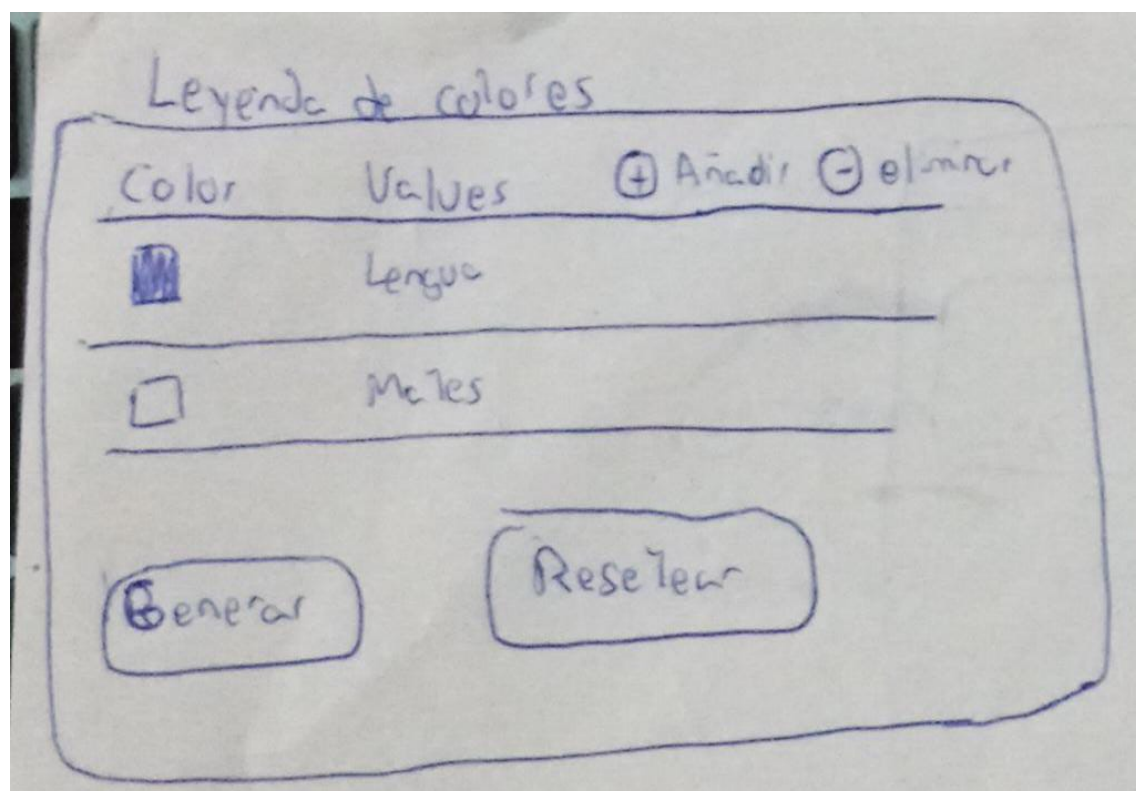 Leyenda de colores
Color Values + Añadir - eliminar
Lengua
Mates
Generar Resetear